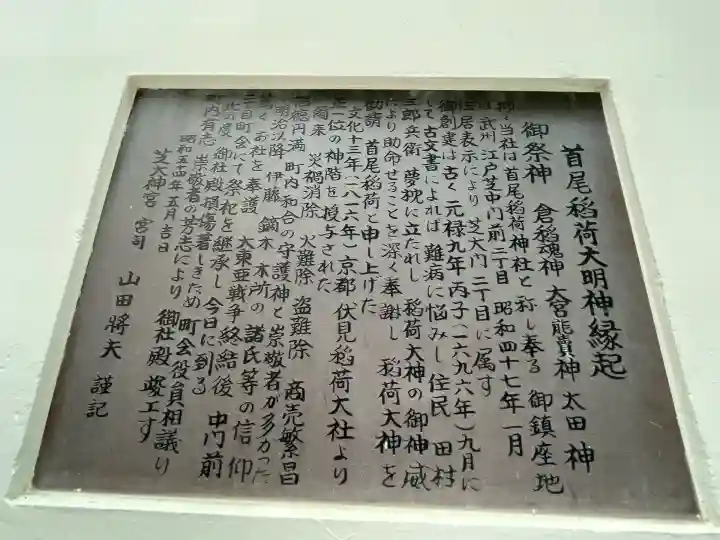 首尾稲荷大明神縁起
御祭神 倉稲魂神 大宮能賣神 太田神
抑々当社は首尾稲荷神社と称し奉る 御鎮座地
は武州江戸芝中門前二丁目 昭和四十七年一月
住居表示により芝大門二丁目に属す
御創建は古く元禄九年丙子(一六九六年)九月に
して古文書によれば 難病に悩みし住民 田村
三郎兵衛 夢枕に立たれし 稲荷大神の御神威
により助命せることを深く奉謝し 稲荷大神を
勧請 首尾稲荷と申し上げた
文化十三年(八一六年)京都 伏見稲荷大社より
正一位の神階を授与された
爾来 災禍消除 火難除 盗難除 商売繁昌
円満 町内和合の守護神と崇敬者が多かった
明治以降 伊藤 鏑木 本所の諸氏等の信仰
篤く お社を奉護 大東亜戦争終結後 中門前
二丁目町会にて祭祀を継承し今日に到る
此の度 御社殿損傷著しきため町会役員相議り
町内有志 崇敬者の芳志により 御社殿竣工す
昭和五十四年五月吉日
芝大神宮 宮司 山田將夫 謹記